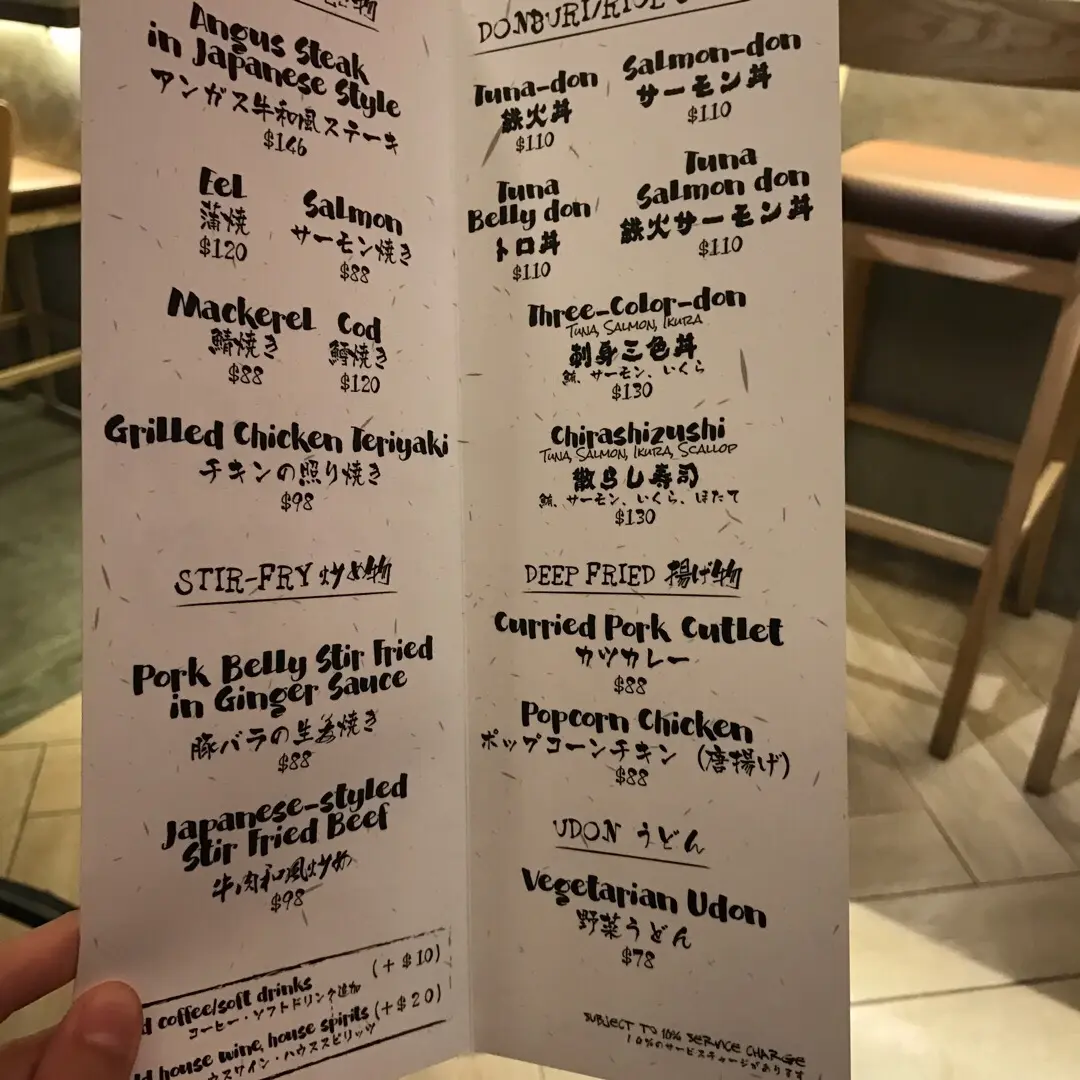 物
Angus Steak
in Japanese Style
アンガス牛和風ステーキ
$146
Eel
蒲焼
$120
Salmon
サーモン焼き
$88
Mackerel
鯖焼き
$88
Cod
鱈焼き
$120
Grilled Chicken Teriyaki
チキンの照り焼き
$98
STIR-FRY 炒め物
Pork Belly Stir Fried
in Ginger Sauce
豚バラの生姜焼き
$88
Japanese-styled
Stir Fried Beef
牛肉和風炒め
$98
coffee/soft drinks (+$10)
コーヒー・ソフトドリンク追加
house wine, house spirits (+$20)
ウスワイン・ハウススピリッツ
DONBURI/RICE
Tuna-don
鉄火丼
$110
Salmon-don
サーモン丼
$110
Tuna
Belly don
トロ丼
$110
Tuna
Salmon don
鉄火サーモン丼
$110
Three-Color-don
Tuna, Salmon, Ikura
刺身三色丼
鮪、サーモン、いくら
$130
Chirashizushi
Tuna, Salmon, Ikura, Scallop
散らし寿司
鮪、サーモン、いくら、ほたて
$130
DEEP FRIED 揚げ物
Curried Pork Cutlet
カツカレー
$88
Popcorn Chicken
ポップコーンチキン (唐揚げ)
$88
UDON うどん
Vegetarian Udon
野菜うどん
$78
SUBJECT TO 10% SERVICE CHARGE
10%のサービスチャージがあります